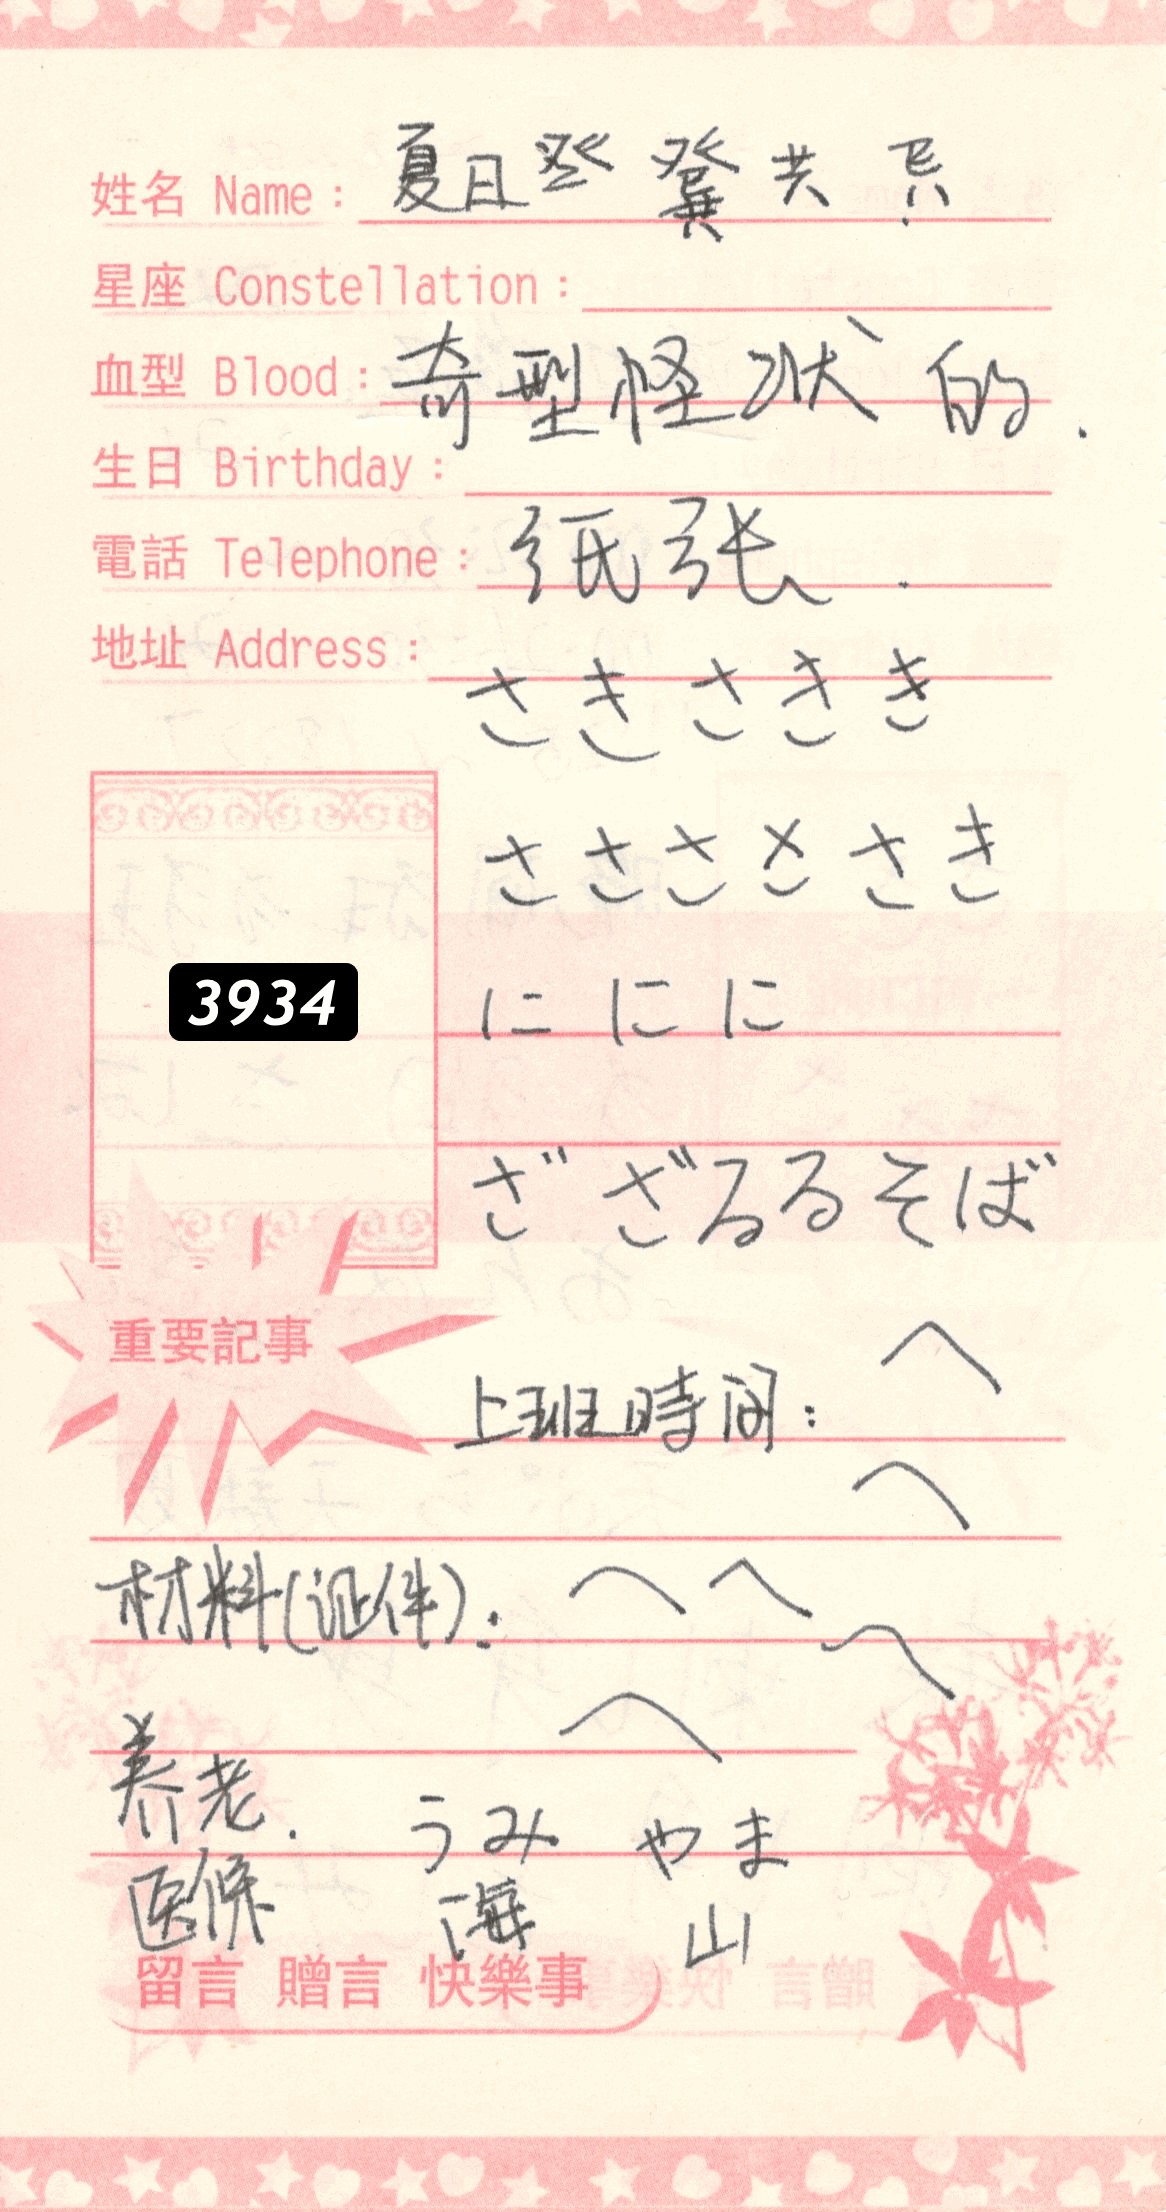 姓名 Name： 夏日 共
星座 Constellation：
血型 Blood： 奇型怪状的.
生日 Birthday：
電話 Telephone： 纸张.
地址 Address：
さきさきき
さささささき
3934
ににに
ざざるるそば
重要記事
へ
上班時间：
へ
材料(证件)： へへ
へ
へ
养老. うみ やま
医保 海 山
留言 贈言 快樂事